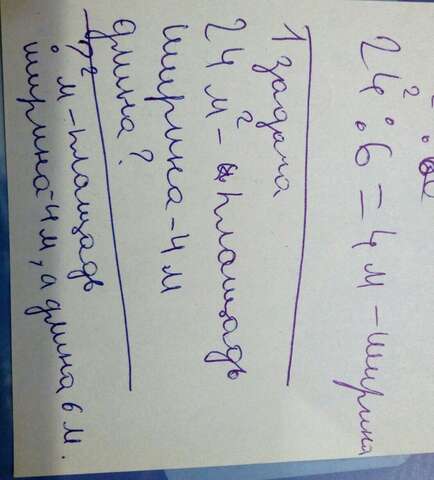 24² : 6 = 4 м - ширина
1 задача
24 м² - площадь
ширина - 4 м
длина?
м² - площадь
ширина - 4 м, а длина 6 м.